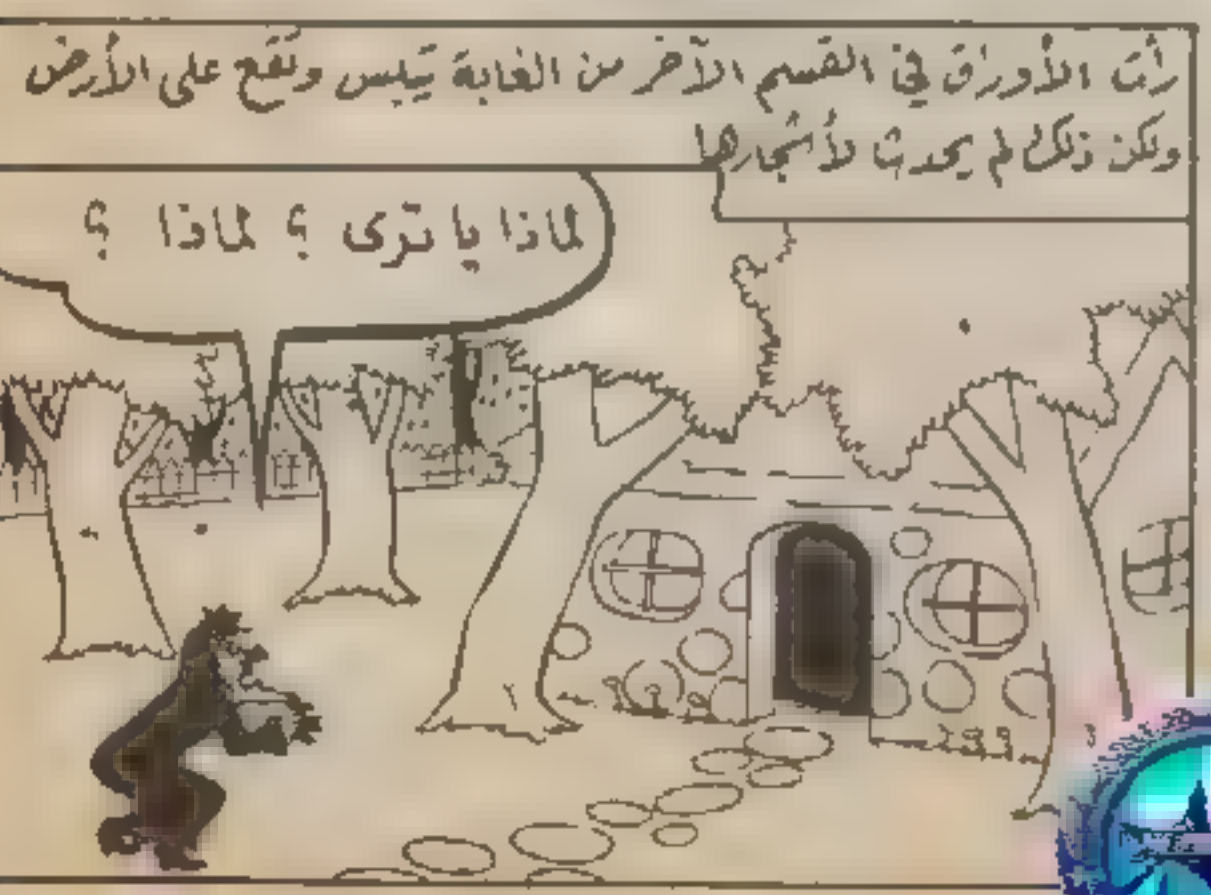 رأت الأوراق في القسم الآخر من الغابة تيبس وتقع على الأرض
ولكن ذلك لم يحدث لأشجارها
لماذا يا ترى ؟ لماذا ؟